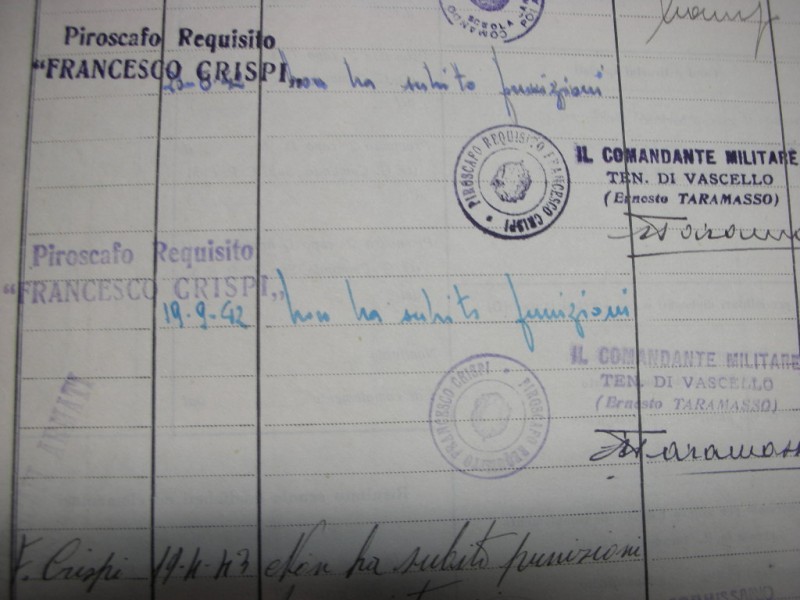 COMANDO SCUOLA
Piroscafo Requisito
"FRANCESCO CRISPI"
non ha subito punizioni
PIROSCAFO REQUISITO FRANCESCO CRISPI
IL COMANDANTE MILITARE
TEN. DI VASCELLO
(Ernesto TARAMASSO)
Piroscafo Requisito
"FRANCESCO CRISPI"
19-9-42 non ha subito punizioni
PIROSCAFO REQUISITO FRANCESCO CRISPI
IL COMANDANTE MILITARE
TEN. DI VASCELLO
(Ernesto TARAMASSO)
Taramasso
F. Crispi 19-4-43 Non ha subito punizioni